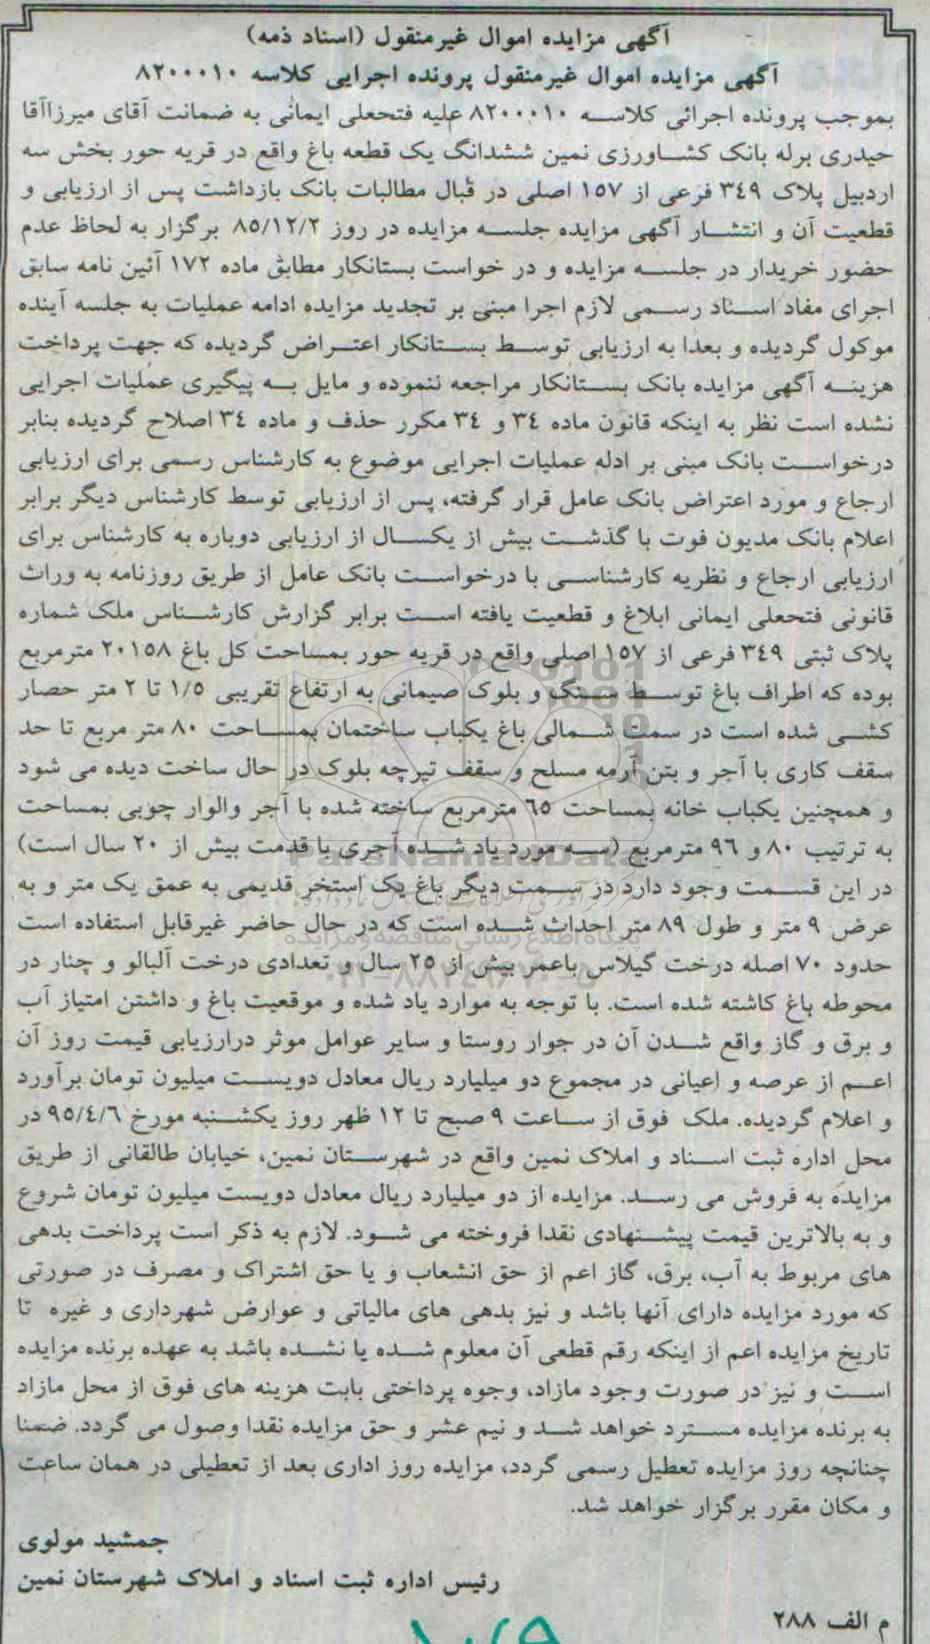 آگهی مزایده اموال غیرمنقول (اسناد ذمه)
آگهی مزایده اموال غیرمنقول پرونده اجرایی کلاسه ۸۲۰۰۰۱۰
بموجب پرونده اجرائی کلاسه ۸۲۰۰۰۱۰ علیه فتحعلی ایمانی به ضمانت آقای میرزاآقا
حیدری برله بانک کشاورزی نمین ششدانگ یک قطعه باغ واقع در قریه حور بخش سه
اردبیل پلاک ۳۴۹ فرعی از ۱۵۷ اصلی در قبال مطالبات بانک بازداشت پس از ارزیابی و
قطعیت آن و انتشار آگهی مزایده جلسه مزایده در روز ۸۵/۱۲/۲ برگزار به لحاظ عدم
حضور خریدار در جلسه مزایده و در خواست بستانکار مطابق ماده ۱۷۲ آئین نامه سابق
اجرای مفاد اسناد رسمی لازم اجرا مبنی بر تجدید مزایده ادامه عملیات به جلسه آینده
موکول گردیده و بعدا به ارزیابی توسط بستانکار اعتراض گردیده که جهت پرداخت
هزینه آگهی مزایده بانک بستانکار مراجعه ننموده و مایل به پیگیری عملیات اجرایی
نشده است نظر به اینکه قانون ماده ۳۴ و ۳۴ مکرر حذف و ماده ۳۴ اصلاح گردیده بنابر
درخواست بانک مبنی بر ادله عملیات اجرایی موضوع به کارشناس رسمی برای ارزیابی
ارجاع و مورد اعتراض بانک عامل قرار گرفته، پس از ارزیابی توسط کارشناس دیگر برابر
اعلام بانک مدیون فوت با گذشت بیش از یکسال از ارزیابی دوباره به کارشناس برای
ارزیابی ارجاع و نظریه کارشناسی با درخواست بانک عامل از طریق روزنامه به وراث
قانونی فتحعلی ایمانی ابلاغ و قطعیت یافته است برابر گزارش کارشناس ملک شماره
پلاک ثبتی ۳۴۹ فرعی از ۱۵۷ اصلی واقع در قریه حور بمساحت کل باغ ۲۰۱۵۸ مترمربع
بوده که اطراف باغ توسط سنگ و بلوک صیمانی به ارتفاع تقریبی ۱/۵ تا ۲ متر حصار
کشی شده است در سمت شمالی باغ یکباب ساختمان بمساحت ۸۰ متر مربع تا حد
سقف کاری با آجر و بتن آرمه مسلح و سقف تیرچه بلوک در حال ساخت دیده می شود
و همچنین یکباب خانه بمساحت ۶۵ مترمربع ساخته شده با آجر والوار چوبی بمساحت
به ترتیب ۸۰ و ۹۶ مترمربع (سه مورد یاد شده آجری با قدمت بیش از ۲۰ سال است)
در این قسمت وجود دارد در سمت دیگر باغ یک استخر قدیمی به عمق یک متر و به
عرض ۹ متر و طول ۸۹ متر احداث شده است که در حال حاضر غیرقابل استفاده است
حدود ۷۰ اصله درخت گیلاس باعمر بیش از ۲۵ سال و تعدادی درخت آلبالو و چنار در
محوطه باغ کاشته شده است. با توجه به موارد یاد شده و موقعیت باغ و داشتن امتیاز آب
و برق و گاز واقع شدن آن در جوار روستا و سایر عوامل موثر درارزیابی قیمت روز آن
اعم از عرصه و اعیانی در مجموع دو میلیارد ریال معادل دویست میلیون تومان برآورد
و اعلام گردیده. ملک فوق از ساعت ۹ صبح تا ۱۲ ظهر روز یکشنبه مورخ ۹۵/۴/۶ در
محل اداره ثبت اسناد و املاک نمین واقع در شهرستان نمین، خیابان طالقانی از طریق
مزایده به فروش می رسد. مزایده از دو میلیارد ریال معادل دویست میلیون تومان شروع
و به بالاترین قیمت پیشنهادی نقدا فروخته می شود. لازم به ذکر است پرداخت بدهی
های مربوط به آب، برق، گاز اعم از حق انشعاب و یا حق اشتراک و مصرف در صورتی
که مورد مزایده دارای آنها باشد و نیز بدهی های مالیاتی و عوارض شهرداری و غیره تا
تاریخ مزایده اعم از اینکه رقم قطعی آن معلوم شده یا نشده باشد به عهده برنده مزایده
است و نیز در صورت وجود مازاد، وجوه پرداختی بابت هزینه های فوق از محل مازاد
به برنده مزایده مسترد خواهد شد و نیم عشر و حق مزایده نقدا وصول می گردد. ضمنا
چنانچه روز مزایده تعطیل رسمی گردد، مزایده روز اداری بعد از تعطیلی در همان ساعت
و مکان مقرر برگزار خواهد شد.
جمشید مولوی
رئیس اداره ثبت اسناد و املاک شهرستان نمین
م الف ۲۸۸